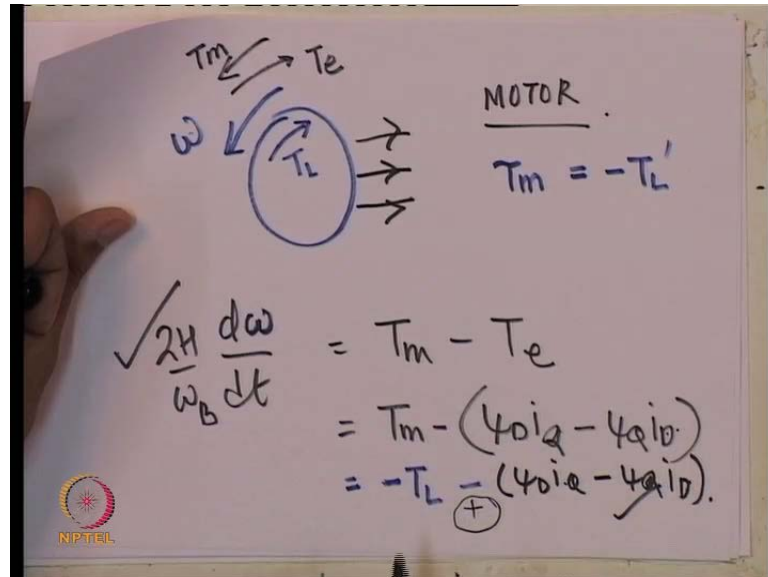 Tm Te
MOTOR.
ω TL
Tm = -TL'
√ 2H/ωB dω/dt = Tm - Te
= Tm - (ψDiQ - ψQiD)
= -TL - (ψDiQ - ψQiD).
+
NPTEL